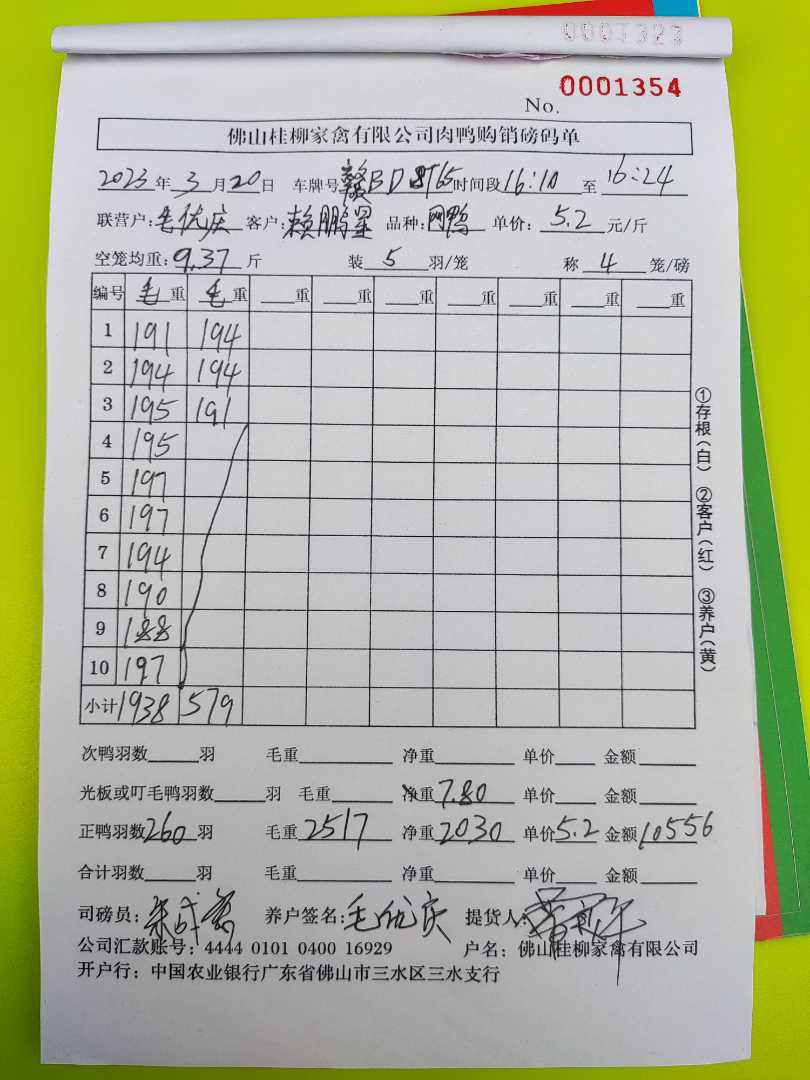 0001353
No. 0001354
佛山桂柳家禽有限公司肉鸭购销磅码单
2023年3月20日 车牌号 赣BD8T65 时间段 16:10 至 16:24
联营户:毛优庆 客户:赖鹏星 品种: 单价: 5.2 元/斤
空笼均重: 9.37 斤 装 5 羽/笼 称 4 笼/磅
编号 毛重 毛重 重 重 重 重 重 重 重
1 191 194
2 194 194
3 195 191
4 195
5 197
6 197
7 194
8 190
9 188
10 197
小计 1938 579
①存根(白) ②客户(红) ③养户(黄)
次鸭羽数 羽 毛重 净重 单价 金额
光板或叮毛鸭羽数 羽 毛重 净重 7.80 单价 金额
正鸭羽数 260 羽 毛重 2517 净重 2030 单价 5.2 金额 10556
合计羽数 羽 毛重 净重 单价 金额
司磅员: 养户签名:毛优庆 提货人:
公司汇款账号: 4444 0101 0400 16929 户名: 佛山桂柳家禽有限公司
开户行: 中国农业银行广东省佛山市三水区三水支行